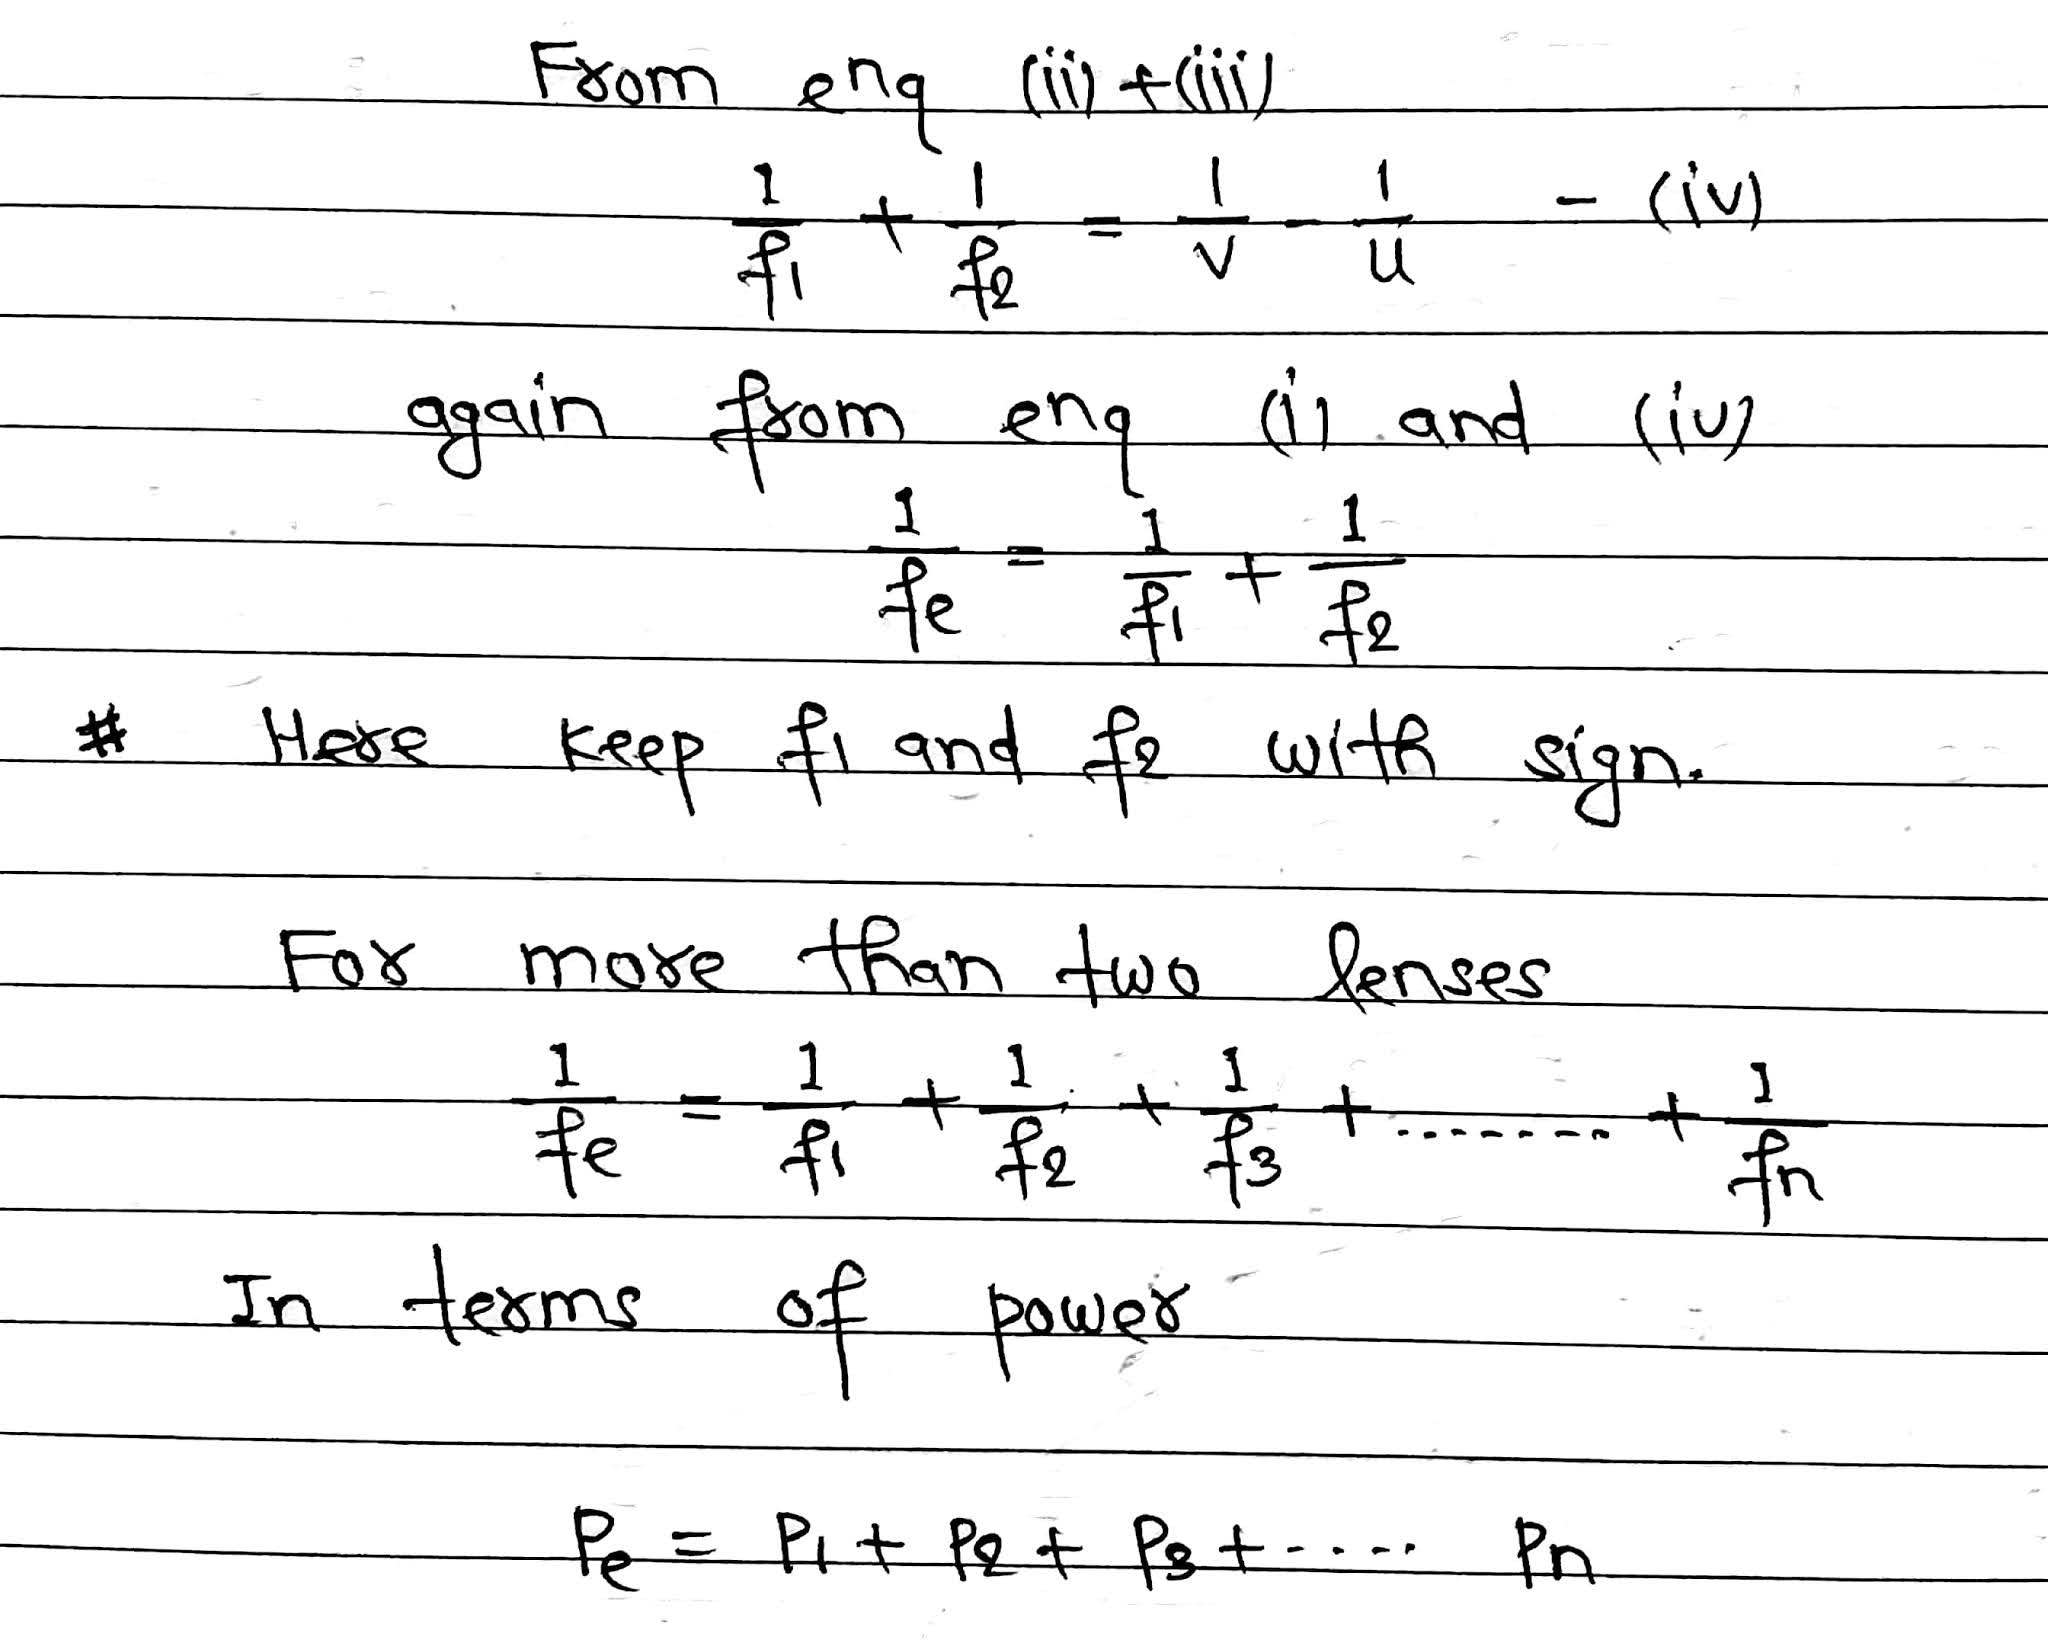 From enq (ii) + (iii)
1/f1 + 1/f2 = 1/v - 1/u - (iv)
again from enq (i) and (iv)
1/fe = 1/f1 + 1/f2
# Here keep f1 and f2 with sign.
For more than two lenses
1/fe = 1/f1 + 1/f2 + 1/f3 + ........ + 1/fn
In terms of power
Pe = P1 + P2 + P3 + ..... Pn